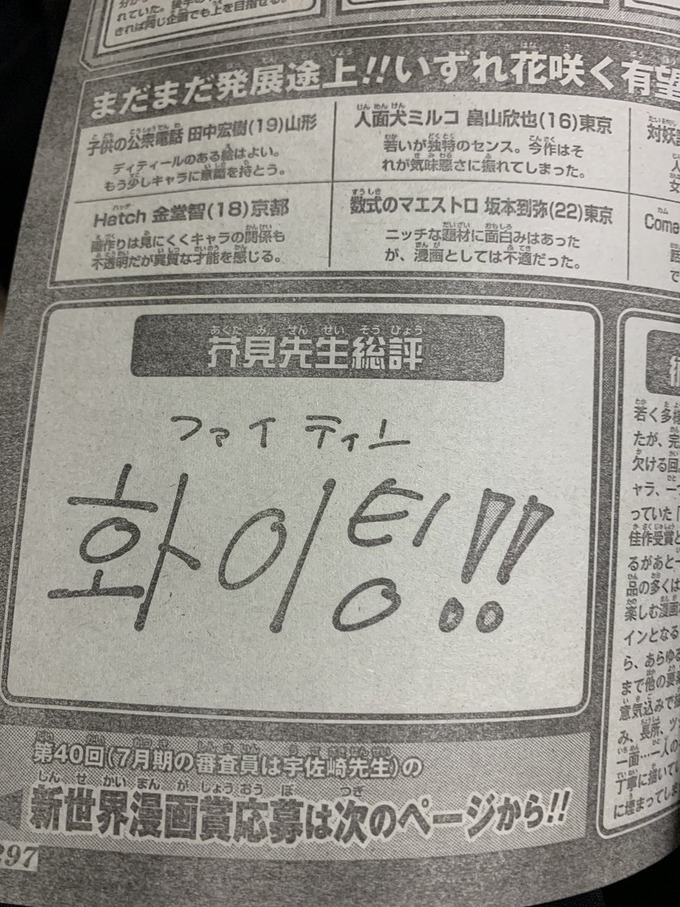 きれば同じ企画でも上を目指せる。
まだまだ発展途上!!いずれ花咲く有望
子供の公衆電話 田中宏樹(19)山形
ディティールのある絵はよい。
もう少しキャラに意識を持とう。
人面犬ミルコ 畠山欣也(16)東京
若いが独特のセンス。今作はそ
れが気味悪さに振れてしまった。
対妖
Hatch 金堂智(18)京都
画作りは見にくくキャラの関係も
不透明だが異質な才能を感じる。
数式のマエストロ 坂本到弥(22)東京
ニッチな題材に面白みはあった
が、漫画としては不適だった。
Come
芥見先生総評
ファイティン
화이팅!!
若く多様
たが、完
欠ける回
ャラ、一
っていた
佳作受賞と
るがあと一
品の多くは
楽しむ漫画
インとなる
ら、あらゆる
まで他の要
意気込みで
み、長所、ツ
一面…一人の
丁寧に描いて
に埋まってしま
第40回(7月期の審査員は宇佐崎先生)の
新世界漫画賞応募は次のページから!!
297